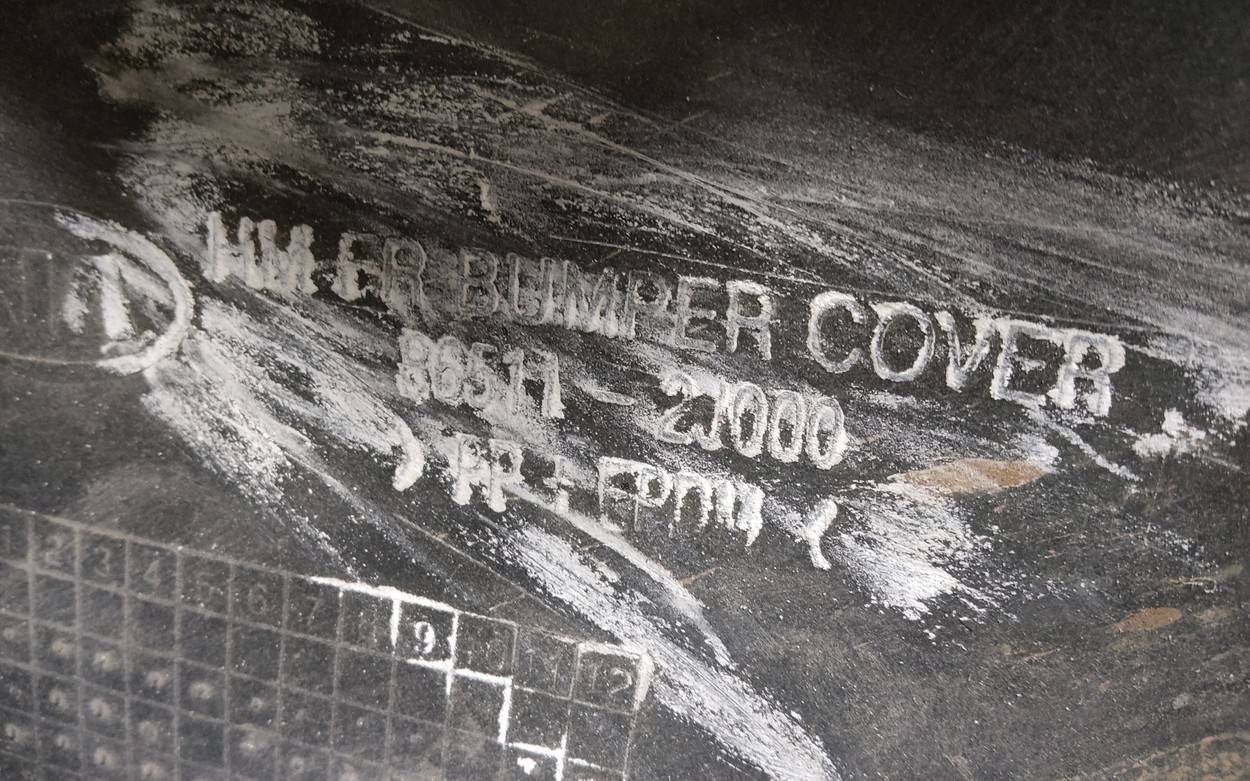 HM FR BUMPER COVER
86511 - 2J000
>PP + EPDM<
2 3 4 5 6 7 8 9 10 11 12